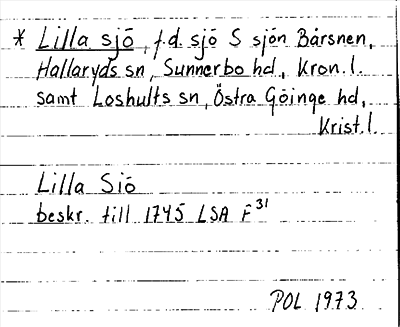 * Lilla sjö, f.d. sjö S sjön Bårsnen,
Hallaryds sn, Sunnerbo hd, Kron. l.
samt Loshults sn, Östra Göinge hd,
Krist. l.
Lilla Siö
beskr. till 1745 LSA F 31
POL 1973